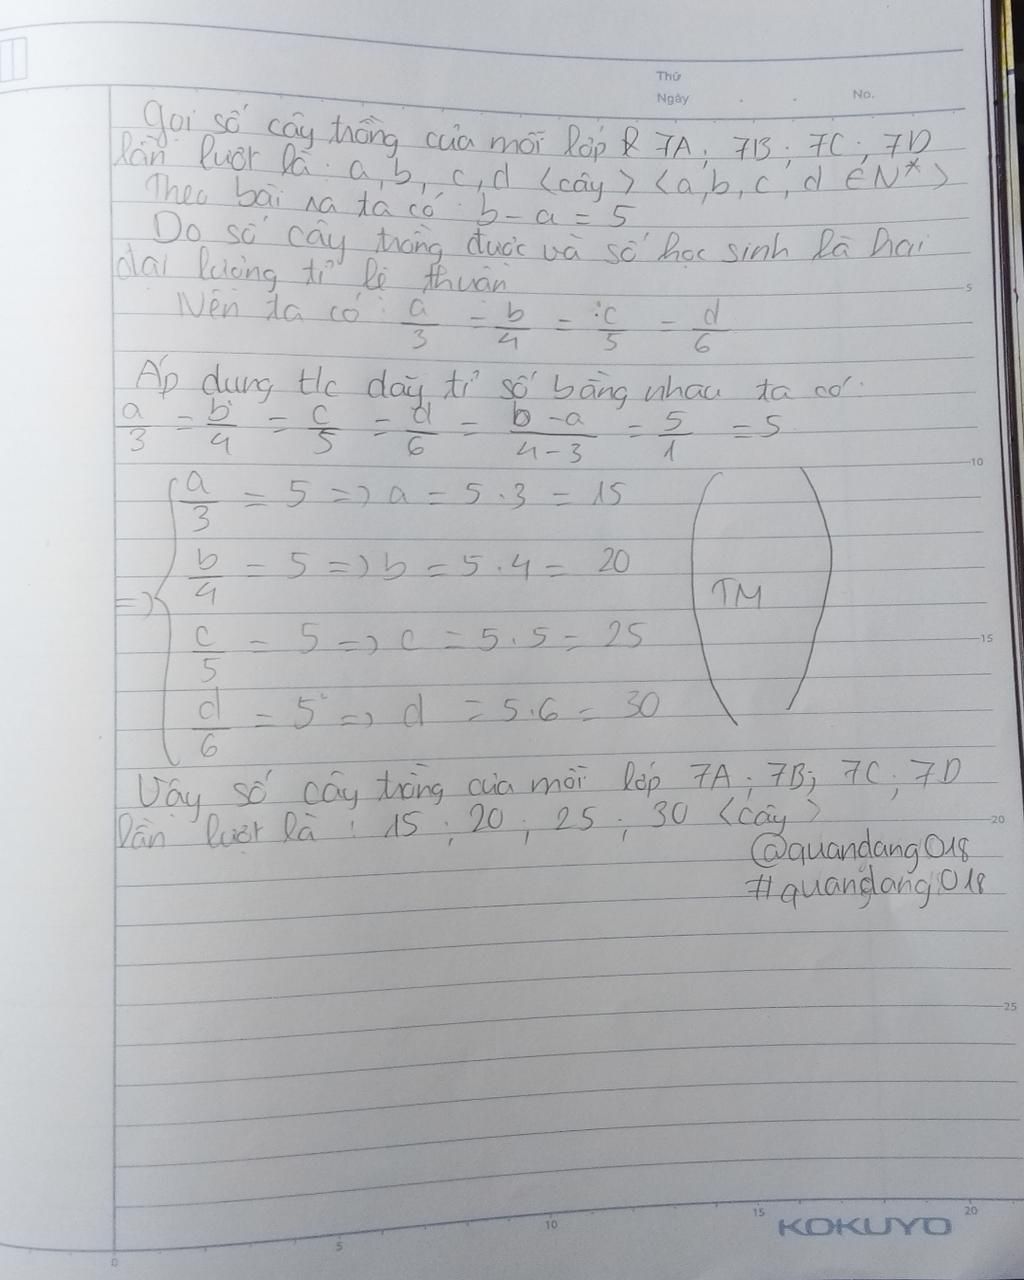 Thứ
Ngày . . No.
Gọi số cây trồng của mỗi lớp 7A; 7B; 7C; 7D
lần lượt là: a, b, c, d <cây> <a, b, c, d ∈ N*>
Theo bài ra ta có: b - a = 5
Do số cây trồng được và số học sinh là hai
đại lượng tỉ lệ thuận
Nên ta có: a/3 = b/4 = c/5 = d/6
5
Áp dụng t/c dãy tỉ số bằng nhau ta có:
a/3 = b/4 = c/5 = d/6 = b-a/4-3 = 5/1 = 5
10
a/3 = 5 => a = 5.3 = 15
b/4 = 5 => b = 5.4 = 20
=> TM
c/5 = 5 => c = 5.5 = 25
15
d/6 = 5 => d = 5.6 = 30
Vậy số cây trồng của mỗi lớp 7A; 7B; 7C; 7D
lần lượt là: 15; 20; 25; 30 <cây>
20
@quandang018
#quandang018
25
0 5 10 15 20
KOKUYO